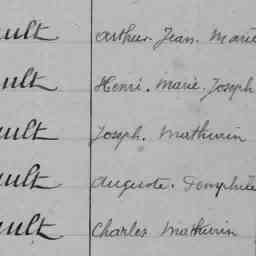 ault Arthur. Jean. Marie
ault Henri. Marie. Joseph
ault Joseph. Mathurin
ault Auguste.
ault Charles. Mathurin